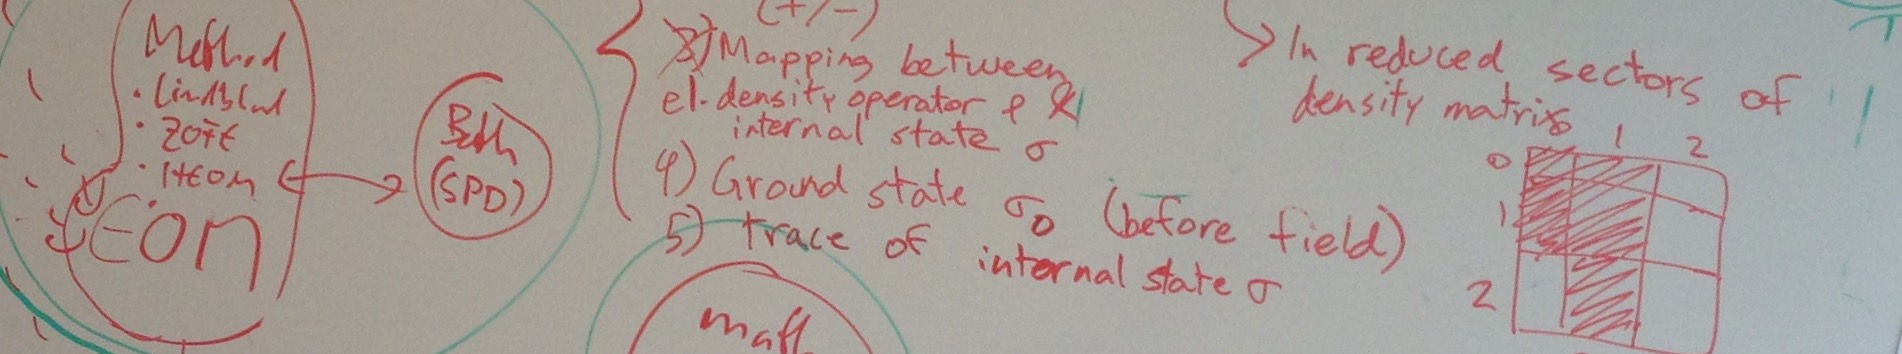 Method
· Lindblad
· ZOFE
· HEOM
Eom
Bath
(SPD)
(+/-)
3) Mapping between
el. density operator ρ &
internal state σ
4) Ground state σ0 (before field)
5) trace of internal state σ
> In reduced sectors of
density matrix
0 1 2
1
2